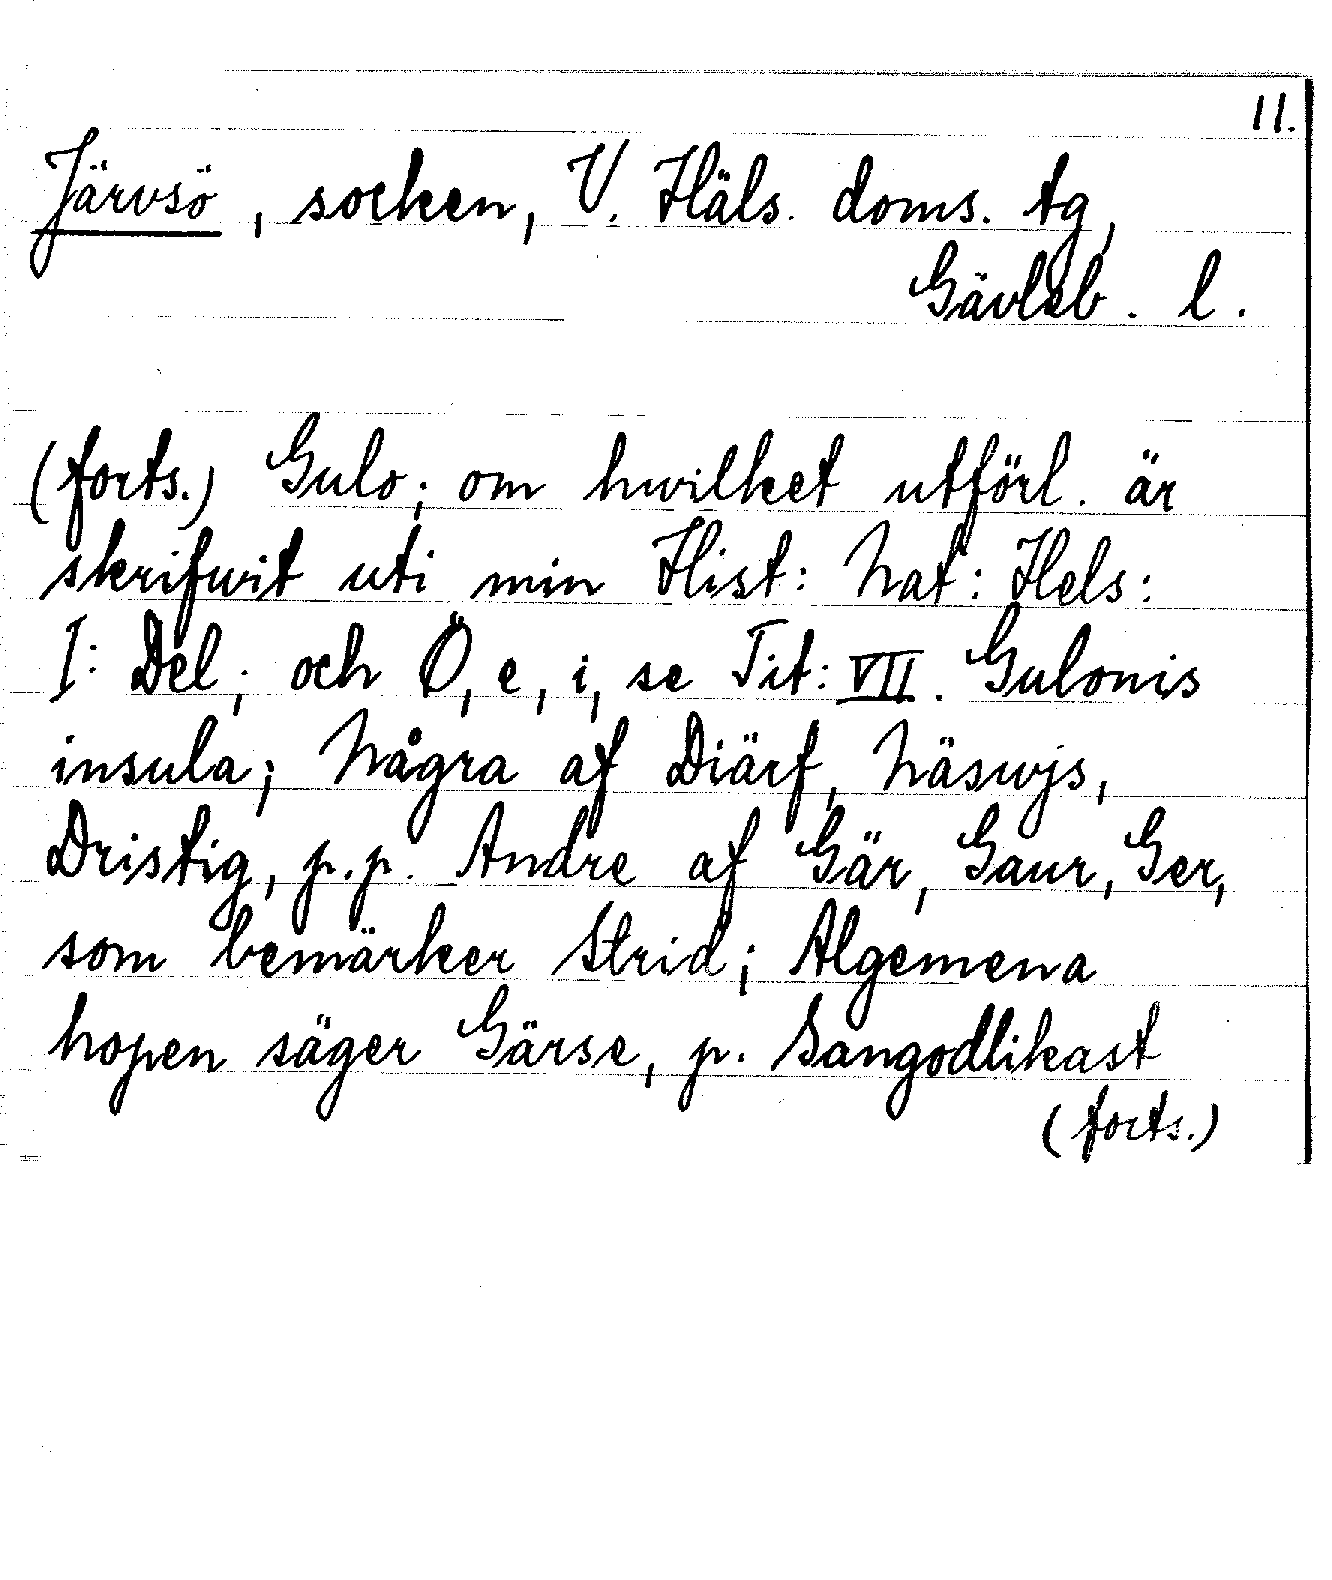 11.
Järvsö, socken, V. Häls. doms. tg,
Gävleb. l.
(forts.) Gulo; om hwilket utförl. är
skrifwit uti min Hist: Nat: Hels:
I: Del; och Ö, e, i, se Tit: VII. Gulonis
insula; Några af Diärf, Näswjs,
Dristig, p.p. Andre af Gär, Gaur, Ger,
som bemärker Strid; Algemena
hopen säger Gärse, p. Sangodlikast
(forts.)